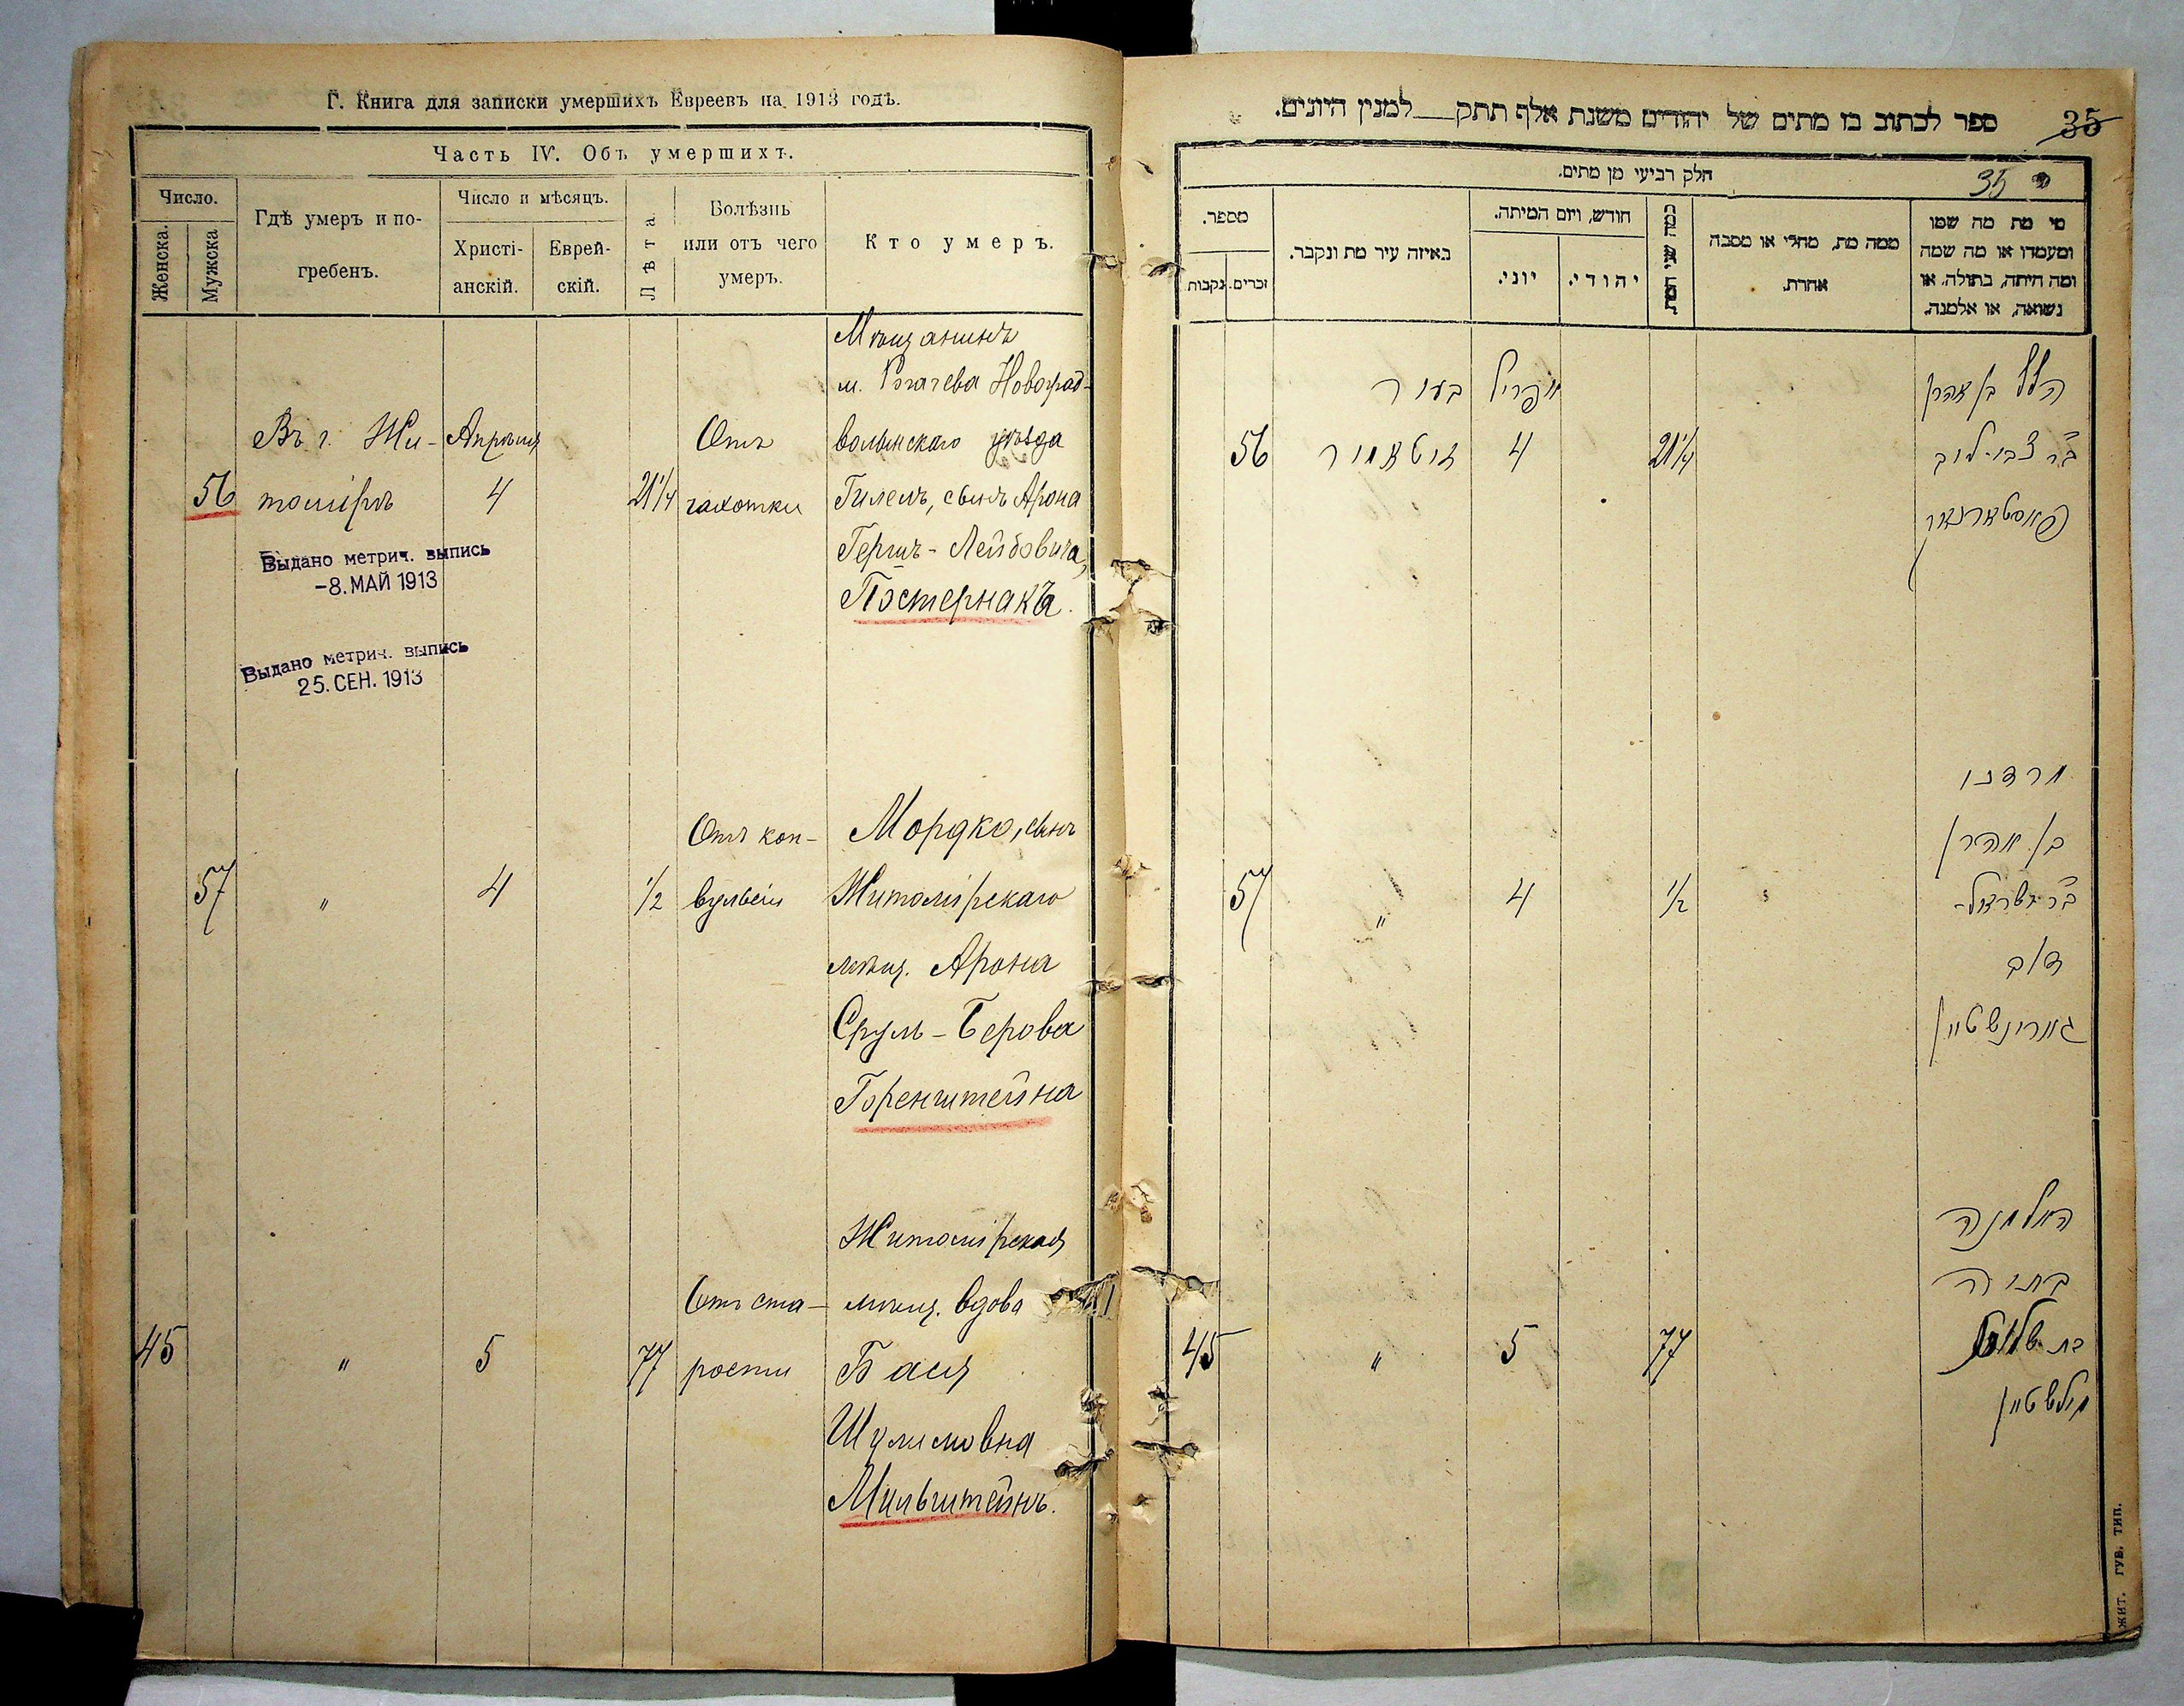 Г. Книга для записки умершихъ Евреевъ на 1913 годъ.
Часть IV. Объ умершихъ.
Число.
Женска.
Мужска
Гдѣ умеръ и по-
гребенъ.
Число и мѣсяцъ.
Христі-
анскій.
Еврей-
скій.
Лѣта
Болѣзнь
или отъ чего
умеръ.
Кто умеръ.
Мѣщанинъ
м. Рогачева Новоград-
Въ г. Жи- Апрѣля Отъ волынскаго уѣзда
56 томірѣ 4 21 1/4 чахотки Гилель, сынъ Арона
Гершъ-Лейбовича
Постернакъ.
Выдано метрич. выпись
-8. МАЙ 1913
Выдано метрич. выпись
25. СЕН. 1913
Отъ кон- Мордко, сынъ
57 " 4 1/2 вульсіи Житомірскаго
мѣщ. Арона
Сруль-Берова
Горенштейна
Житомірская
Отъ ста- мѣщ. вдова
45 " 5 77 рости Бася
Шулимовна
Мильштейнъ.
ספר לכתוב בו מתים של יהודים משנת אלף תתק למנין היונים.
35
חלק רביעי מן מתים.
35
מספר.
זכרים.
נקבות
באיזה עיר מת ונקבר.
חודש, ויום המיתה.
יוני.
יהודי.
כמה שני המת
ממה מת, מחלי או מסבה
אחרת.
מי מת מה שמו
ומעמדו או מה שמה
ומה היתה, בתולה, או
נשואה, או אלמנה.
בעיר אפריל הלל בן אהרן
56 זיטאמיר 4 21 1/4 ב״ר צבי-ליב
פאסטארנאק
מרדכי
בן אהרן
57 " 4 1/2 ב״ר ישראל-
דוב
גארינשטיין
האלמנה
בתיה
45 " 5 77 בת
מילשטיין
ЖИТ. ГУБ. ТИП.